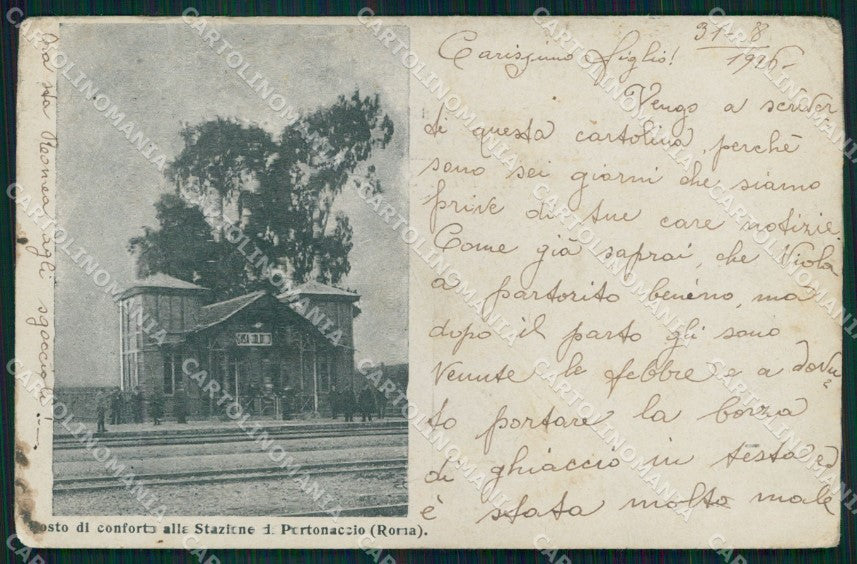 31-8
1916-
Carissimo figlio!
Vengo a scriver
ti questa cartolina, perchè
sono sei giorni che siamo
prive di tue care notizie.
Come già saprai, che Viola
a partorito benéno, ma
dopo il parto gli sono
venute le febbre e a dovu-
to portare la borza
di ghiaccio in testa ed
è stata molto male
sta agli sgoccioli!...
CASA DEL
osto di conforto alla Stazione di Portonaccio (Roma).
CARTOLINOMANIA